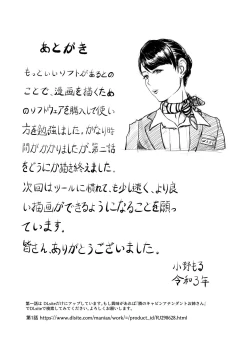 あとがき
もっといいソフトがあるとの
ことで、漫画を描くため
のソフトウェアを購入して使い
方を勉強しました。かなり時
間がかかりましたが、第二話
をどうにか描き終えました。
次回はツールに慣れて、も少し速く、より良
い描画ができるようになることを願っ
ています。
皆さん、ありがとうございました。
小野もる
令和3年
第一話は DLsiteだけにアップしています。もし興味があれば「隣のキャビンアテンダントお姉さん」
でDLsiteで検索してみてください。よろしくお願いします。
第1話 https://www.dlsite.com/maniax/work/=/product_id/RJ298628.html